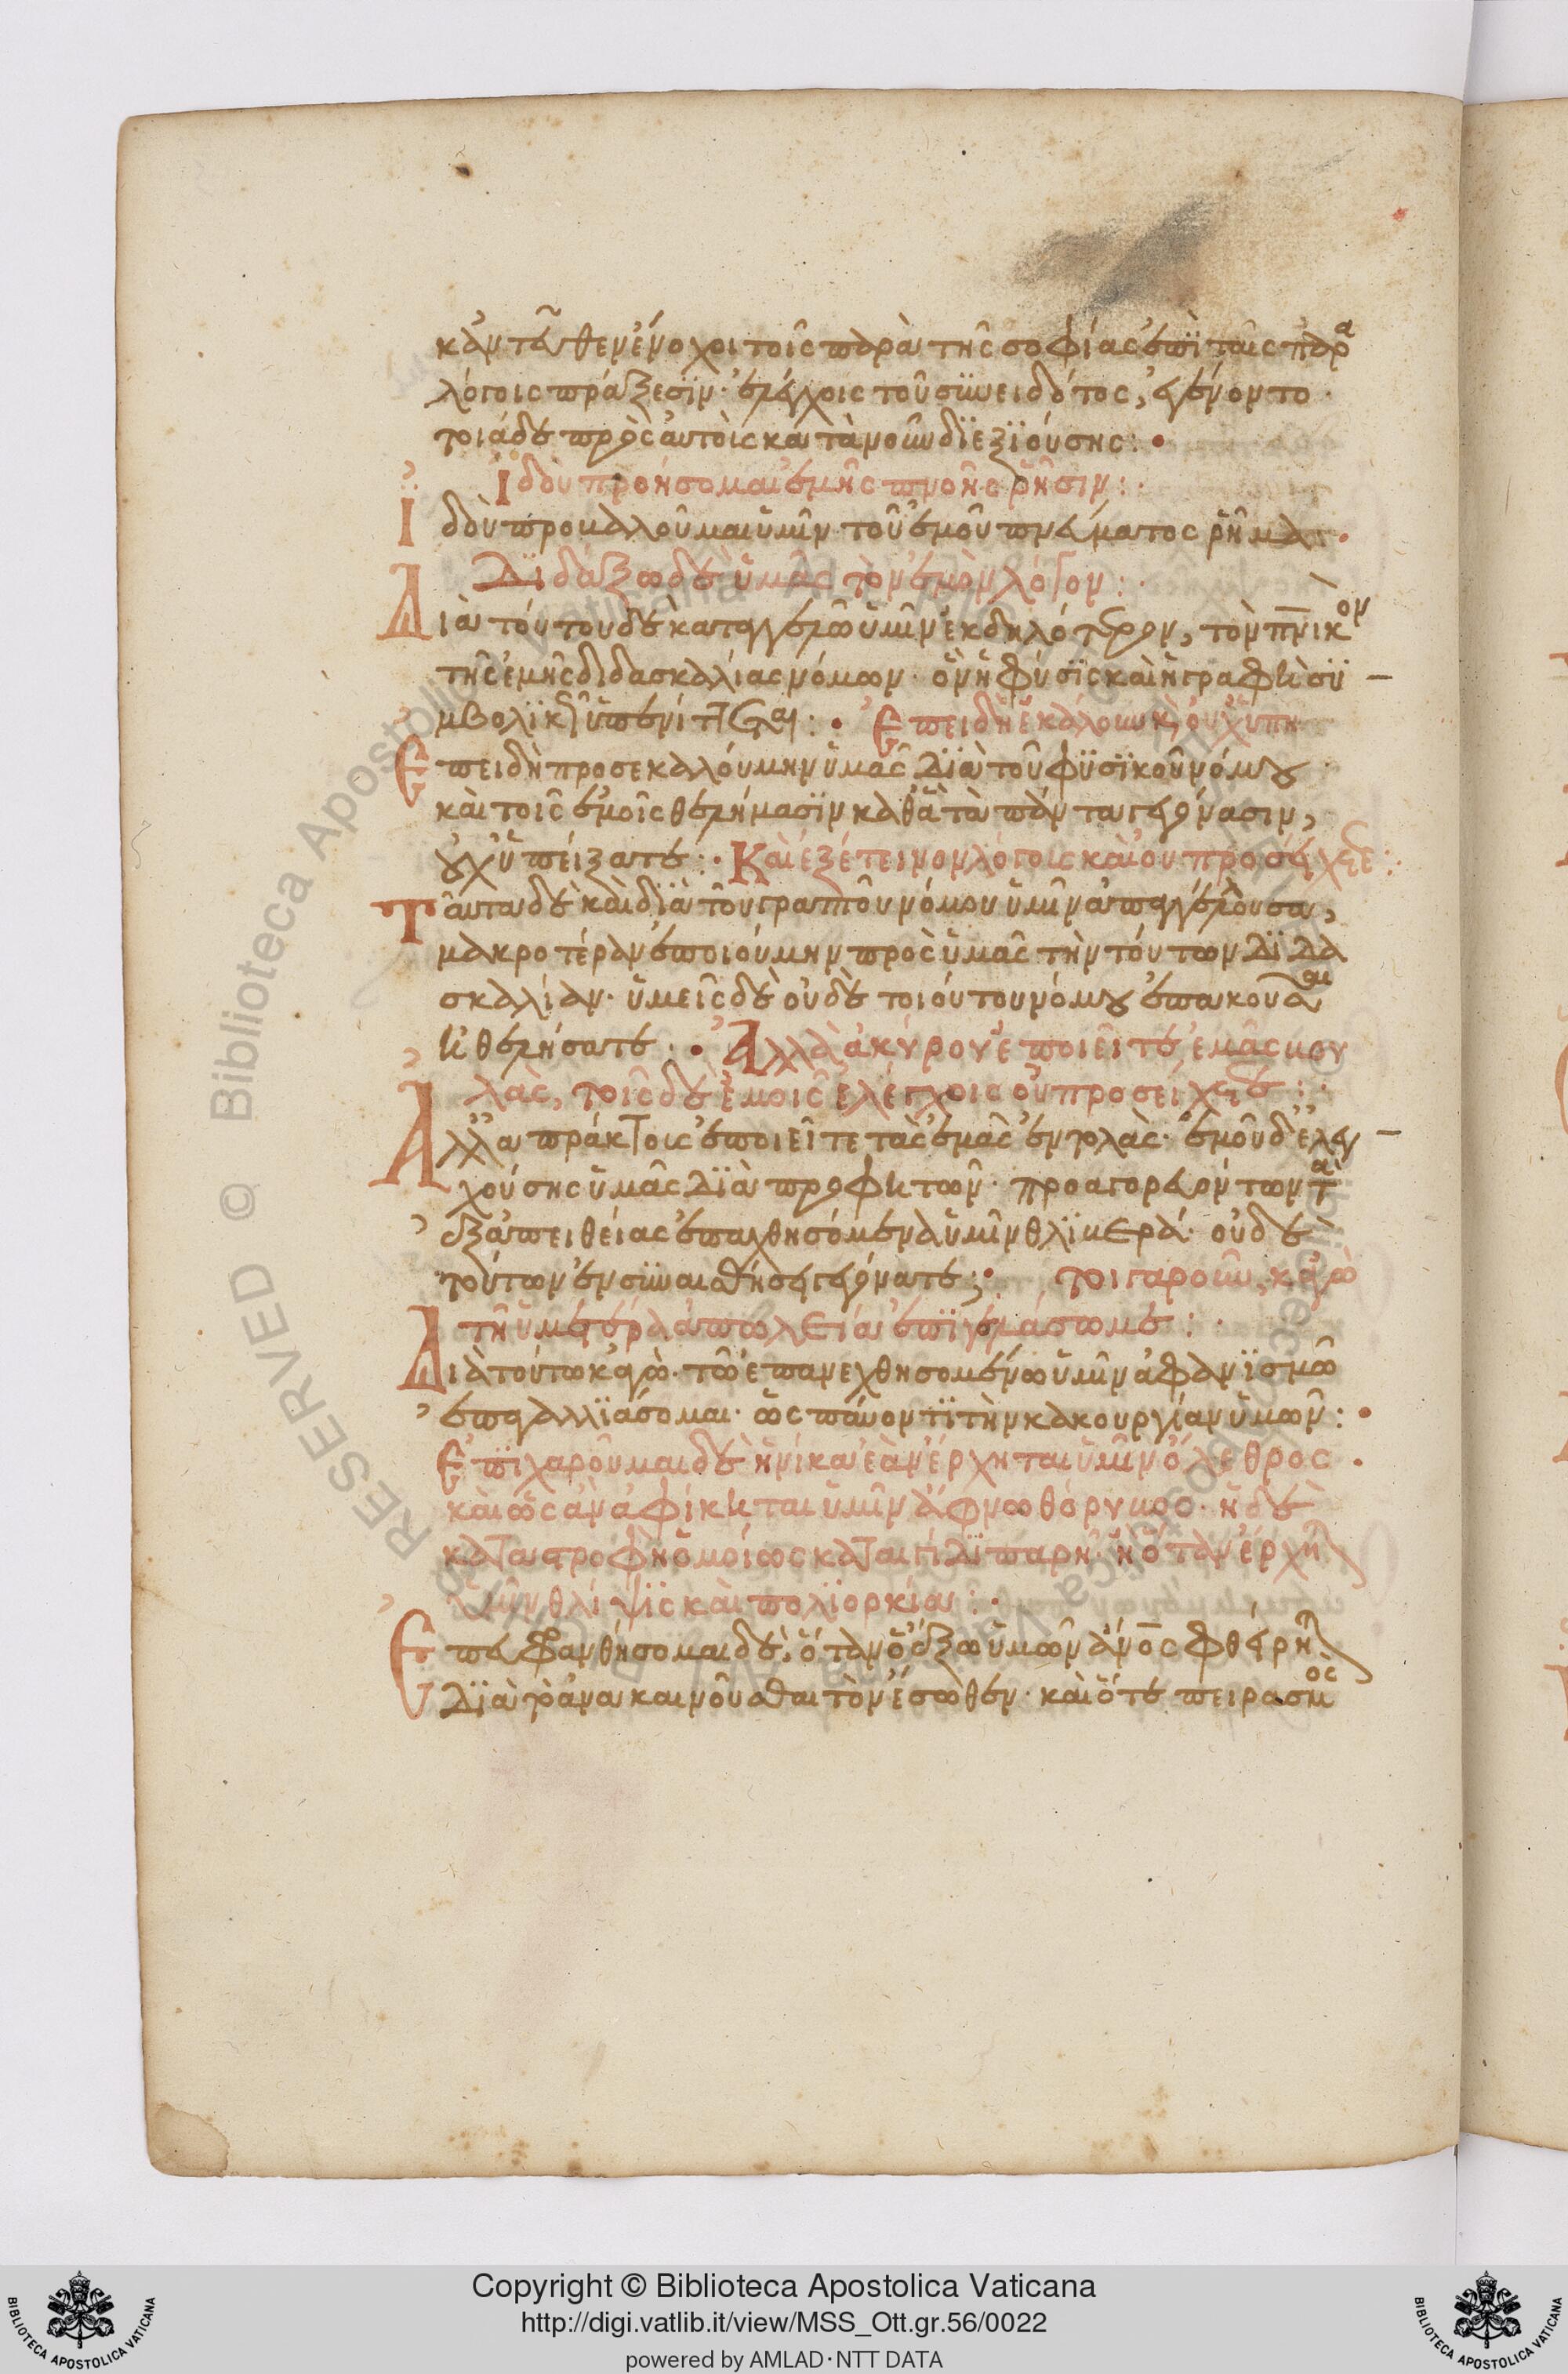 κἀντεῦθεν ἔνοχοι τοῖς παρὰ τῆς σοφίας ἐπὶ ταῖς παρα
λόγοις πράξεσιν· ἐλέγχοις τοῦ συνειδότος, ἐγένοντο·
τοιάδε πρὸς αὐτοῖς κατὰ νοῦν διεξιούσης:
Ἰδοὺ προήσομαι ἐμῆς πνοῆς ῥῆσιν:
Ἰδοὺ προκαλοῦμαι ὑμῖν τοῦ ἐμοῦ πνεύματος ῥήματα·
Διδάξω δὲ ὑμᾶς τὸν ἐμὸν λόγον:
Διὰ τούτου δὲ καταγγελῶ ὑμῖν ἐκδηλότερον, τὸν πνικὸν
τῆς ἐμῆς διδασκαλίας νόμον· ὃν ἡ φύσις καὶ ἡ γραφὴ συ
μβολικῶς ὑπαινίττεται: Ἐπειδὴ ἐκάλουν κ οὐχ ὑπη
Ἐπειδὴ προσεκαλούμην ὑμᾶς διὰ τοῦ φυσικοῦ νόμου
καὶ τοῖς ἐμοῖς θελήμασιν καθ' ἃ τὰ πάντα γεγόνασιν,
οὐχ ὑπείξατε: Καὶ ἐξέτεινον λόγοις καὶ οὐ προσείχετε:
Ταῦτα δὲ καὶ διὰ τοῦ γραπτοῦ νόμου ὑμῖν ἀπαγγέλουσα,
μακροτέραν ἐποιούμην πρὸς ὑμᾶς τὴν τούτων διδα
σκαλίαν· ὑμεῖς δὲ οὐδὲ τοιούτου νόμου ἐπακοῦσαι
ἠθελήσατε: Ἀλλὰ ἀκύρους ἐποιεῖτε ἐμὰς βου
λάς, τοῖς δὲ ἐμοῖς ἐλέγχοις οὐ προσείχετε:
Ἀλλ' ἀπράκτους ἐποιεῖτε τὰς ἐμὰς ἐντολάς· ἐμοῦ δ' ἐλεγ
χούσης ὑμᾶς διὰ προφητῶν· προαγορευόντων τὰ
ἐξ ἀπειθείας ἐπαχθησόμενα ὑμῖν θλιβερά· οὐδὲ
τούτων ἐν συναισθήσει γεγόνατε; τοιγαροῦν, κἀγὼ
τῇ ὑμετέρᾳ ἀπωλείᾳ ἐπιγελάσομαι:
Διὰ τοῦτο κἀγὼ· τῷ ἐπανεχθησομένῳ ὑμῖν ἀφανισμῷ
ἐπαγαλλιάσομαι· ὡς παύοντι τὴν κακουργίαν ὑμῶν:
Ἐπιχαροῦμαι δὲ ἡνίκα ἐὰν ἔρχηται ὑμῖν ὄλεθρος.
καὶ ὡς ἂν ἀφίκηται ὑμῖν ἄφνω θόρυβος· ἡ δὲ
καταστροφὴ ὁμοίως καταιγίδι παρῇ· ἢ ὅταν ἔρχηται
ὑμῖν θλίψις καὶ πολιορκία:
Ἐπευφρανθήσομαι δέ, ὅταν ὁ ἔξω ὑμῶν ἄνος φθείρηται
διὰ τὸ ἀνακαινοῦσθαι τὸν ἔσωθεν· καὶ ὅτε πειρασμὸς
Copyright © Biblioteca Apostolica Vaticana
http://digi.vatlib.it/view/MSS_Ott.gr.56/0022
powered by AMLAD·NTT DATA